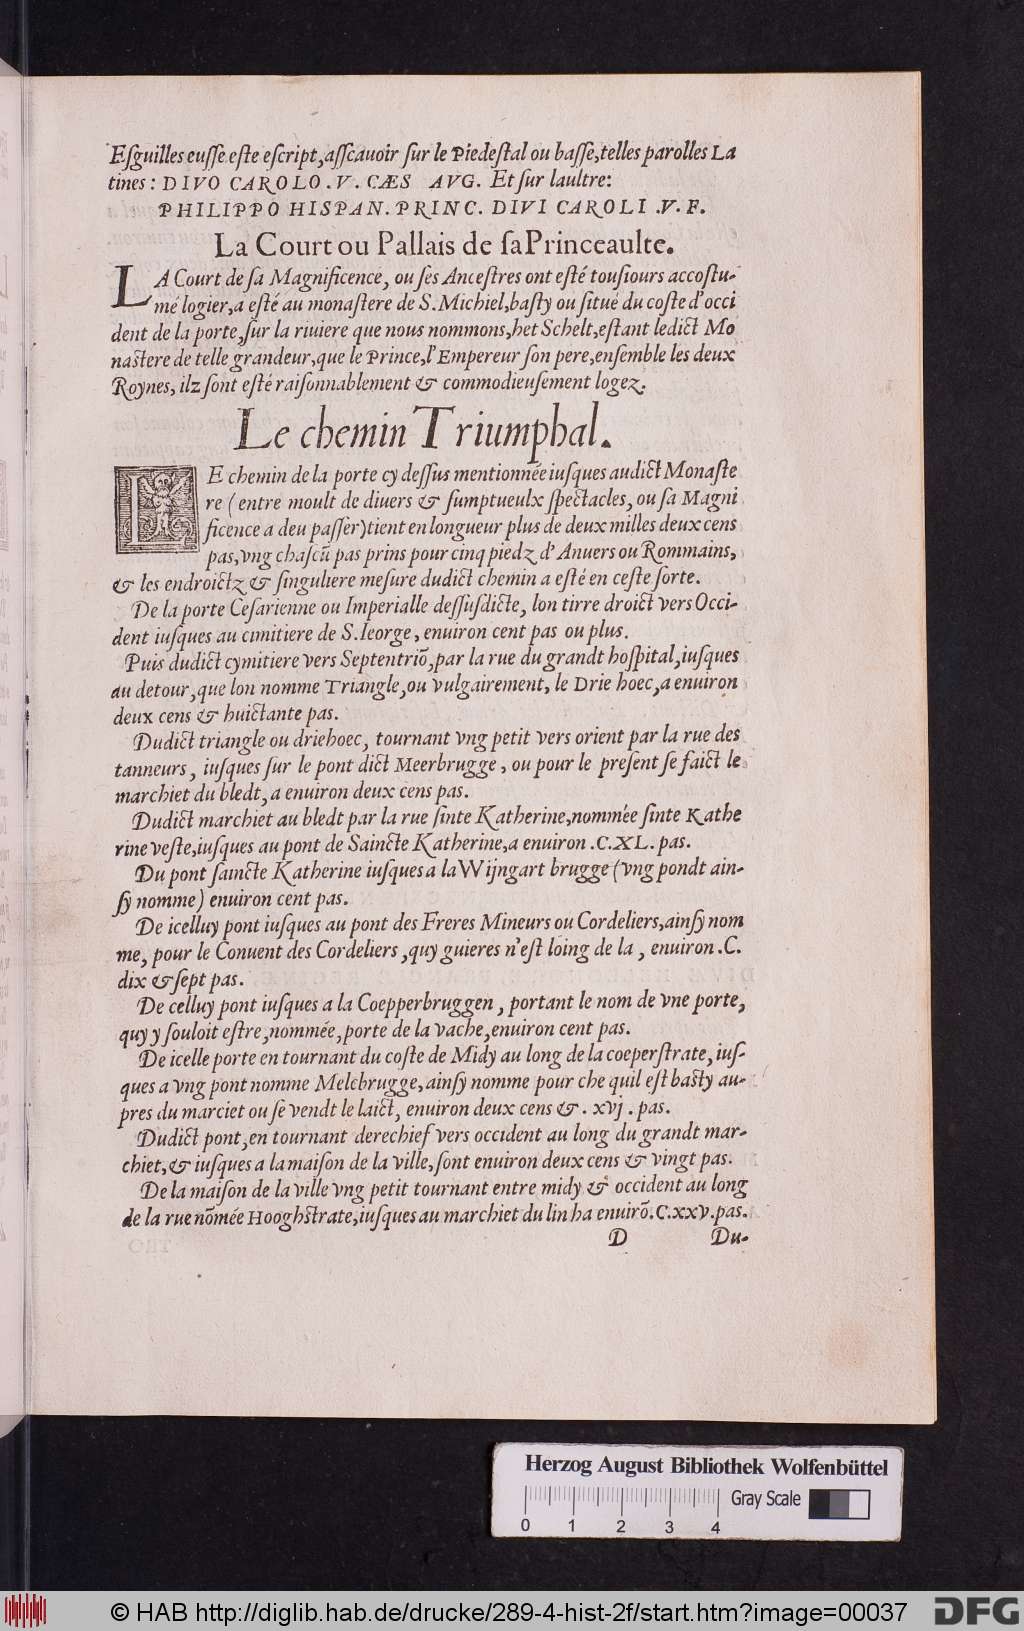 Eſguilles euſſe eſte eſcript, aſſcauoir ſur le Piedeſtal ou baſſe, telles parolles La
tines: DIVO CAROLO .V. CÆS AVG. Et ſur laultre:
PHILIPPO HISPAN. PRINC. DIVI CAROLI .V. F.
La Court ou Pallais de ſa Princeaulte.
LA Court de ſa Magnificence, ou ſes Anceſtres ont eſté touſiours accoſtu-
mé logier, a eſté au monaſtere de S. Michiel, baſty ou ſitué du coſte d'occi
dent de la porte, ſur la riuiere que nous nommons, het Schelt, eſtant ledict Mo
naſtere de telle grandeur, que le Prince, l'Empereur ſon pere, enſemble les deux
Roynes, ilz ſont eſté raiſonnablement & commodieuſement logez.
Le chemin Triumphal.
LE chemin de la porte cy deſſus mentionnée iuſques audict Monaſte
re (entre moult de diuers & ſumptueulx ſpectacles, ou ſa Magni
ficence a deu paſſer) tient en longueur plus de deux milles deux cens
pas, vng chaſcū pas prins pour cinq piedz d'Anuers ou Rommains,
& les endroictz & ſinguliere meſure dudict chemin a eſté en ceſte ſorte.
De la porte Ceſarienne ou Imperialle deſſuſdicte, lon tirre droict vers Occi-
dent iuſques au cimitiere de S. Ieorge, enuiron cent pas ou plus.
Puis dudict cymitiere vers Septentriō, par la rue du grandt hoſpital, iuſques
au detour, que lon nomme Triangle, ou vulgairement, le Drie hoec, a enuiron
deux cens & huictante pas.
Dudict triangle ou driehoec, tournant vng petit vers orient par la rue des
tanneurs, iuſques ſur le pont dict Meerbrugge, ou pour le preſent ſe faict le
marchiet du bledt, a enuiron deux cens pas.
Dudict marchiet au bledt par la rue ſinte Katherine, nommée ſinte Kathe
rine veſte, iuſques au pont de Saincte Katherine, a enuiron .C.XL. pas.
Du pont ſaincte Katherine iuſques a la Wijngart brugge (vng pondt ain-
ſy nomme) enuiron cent pas.
De icelluy pont iuſques au pont des Freres Mineurs ou Cordeliers, ainſy nom
me, pour le Conuent des Cordeliers, quy guieres n'eſt loing de la, enuiron .C.
dix & ſept pas.
De celluy pont iuſques a la Coepperbruggen, portant le nom de vne porte,
quy y ſouloit eſtre, nommée, porte de la vache, enuiron cent pas.
De icelle porte en tournant du coſte de Midy au long de la coeperſtrate, iuſ-
ques a vng pont nomme Melcbrugge, ainſy nomme pour che quil eſt baſty au-
pres du marciet ou ſe vendt le laict, enuiron deux cens & . xvj . pas.
Dudict pont, en tournant derechief vers occident au long du grandt mar-
chiet, & iuſques a la maiſon de la ville, ſont enuiron deux cens & vingt pas.
De la maiſon de la ville vng petit tournant entre midy & occident au long
de la rue nōmée Hooghſtrate, iuſques au marchiet du lin ha enuirō .C.xxv. pas.
D Du-
Herzog August Bibliothek Wolfenbüttel
Gray Scale
0 1 2 3 4
© HAB http://diglib.hab.de/drucke/289-4-hist-2f/start.htm?image=00037
DFG